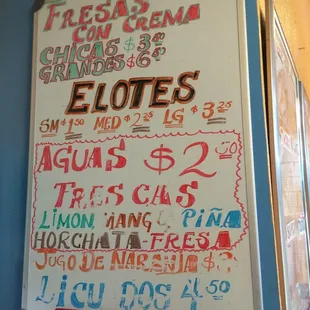 FRESAS
CON CREMA
CHICAS $3.
GRANDES $6.
ELOTES
SM $1.50 MED $2.25 LG $3.25
AGUAS $2.00
FRESCAS
LIMON, MANG PIÑA
HORCHATA-FRESA
JUGO DE NARANJA $3
LICUADOS 4.50